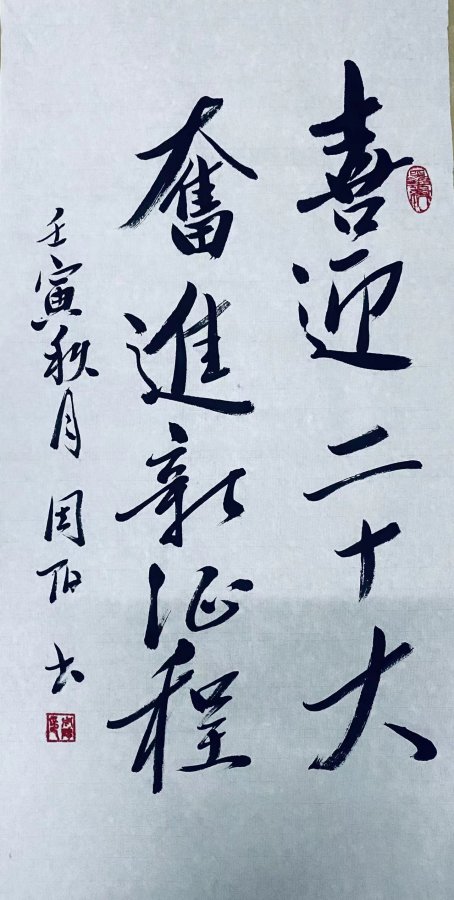 喜迎二十大
奮進新征程
壬寅秋月 周 书